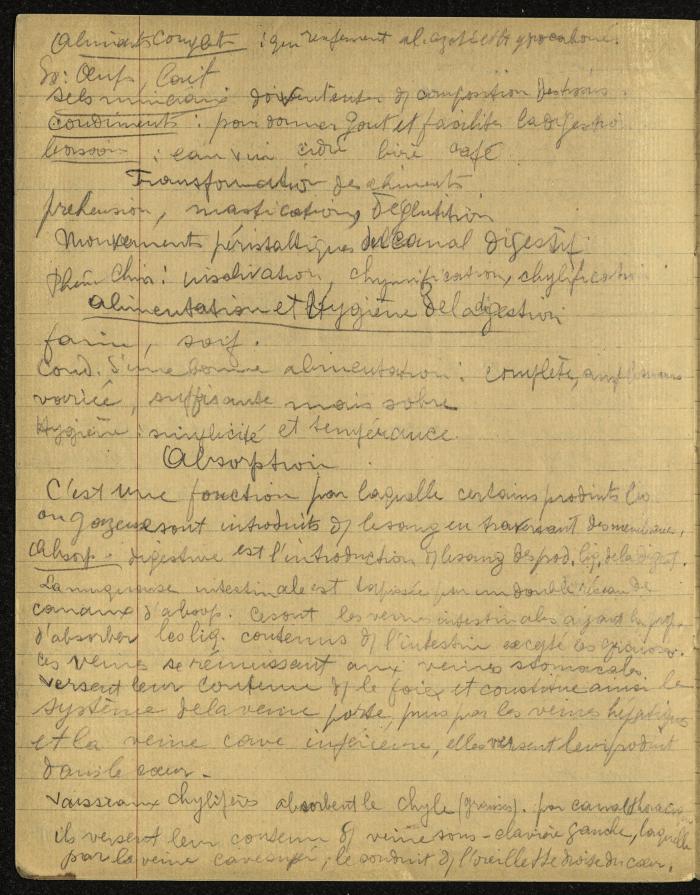 Aliments Complets : qui renferment al. azotés et hydrocarbonés.
Ex : Oeufs, Lait
Sels minéraux doivent entrer ds composition des tissus.
Condiments : pour donner goût et faciliter la digestion
boisson : eau vin cidre bière café
Transformation des aliments
préhension, mastication, déglutition
Mouvements péristaltiques du canal digestif
Phén Chim : insalivation, chymification, chylification
Alimentation et Hygiène de la digestion
faim, soif.
Cond. d'une bonne alimentation : complète,
variée, suffisante mais sobre
Hygiène : simplicité et tempérance.
Absorption
C'est une fonction par laquelle certains produits liq
ou gazeux sont introduits ds le sang en traversant des membranes.
Absorp. digestive est l'introduction ds le sang des prod. liq. de la digest.
La muqueuse intestinale est tapissée par un double réseau de
canaux d'absorp. Ce sont les veines intestinales ayant la prop.
d'absorber les liq. contenus ds l'intestin excepté les graisses.
ces veines se réunissant aux veines stomacales
versent leur contenu ds le foie et constitue ainsi le
système de la veine porte, puis par les veines hépatiques
et la veine cave inférieure, elles versent leur produit
dans le coeur.
Vaisseaux chylifères absorbent le chyle (graisses). par canal thoracique
ils versent leur contenu ds veine sous-clavière gauche, laquelle
par la veine cave supé, le conduit ds l'oreillette droite du coeur.